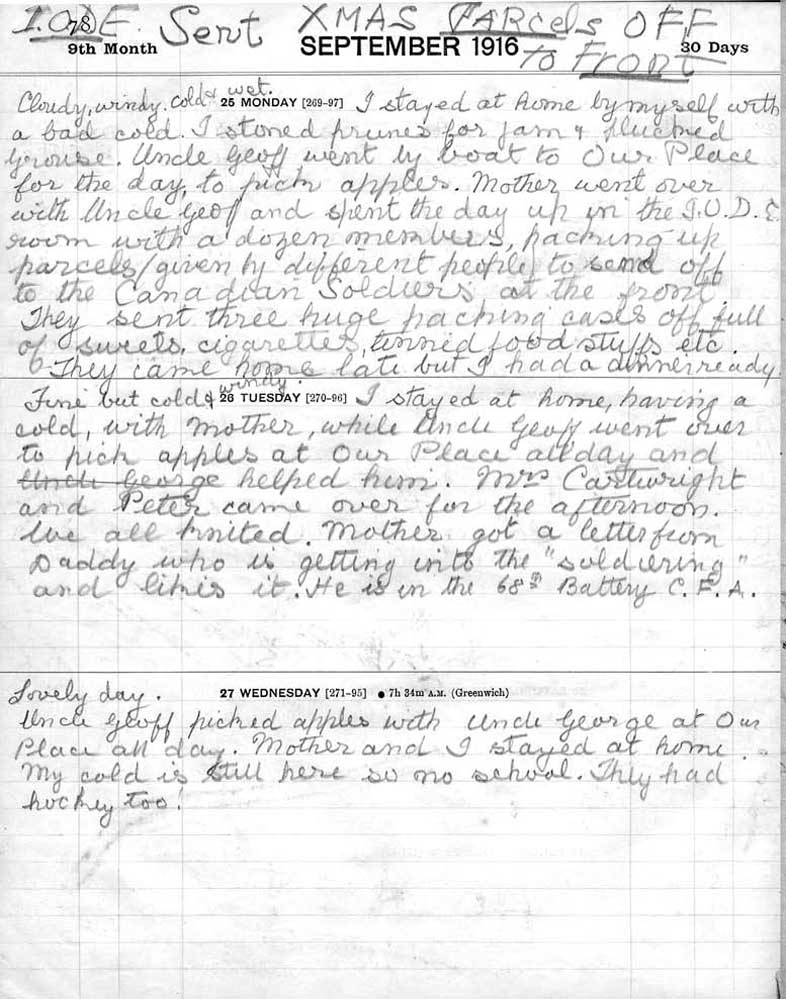 I.O.D.E. Sent XMAS PARCels OFF
78
9th Month SEPTEMBER 1916 30 Days
to Front
Cloudy, windy. cold & wet. 25 MONDAY [269-97] I stayed at home by myself with
a bad cold. I stoned prunes for jam & plucked
grouse. Uncle Geoff went by boat to Our Place
for the day, to pick apples. Mother went over
with Uncle Geoff and spent the day up in the I.O.D.E
room with a dozen members, packing up
parcels (given by different people) to send off
to the Canadian Soldiers at the front.
They sent three huge packing cases off full
of sweets, cigarettes, tinned food stuffs etc.
They came home late but I had a dinner ready.
Fine but cold & windy. 26 TUESDAY [270-96] I stayed at home, having a
cold, with Mother, while Uncle Geoff went over
to pick apples at Our Place all day and
Uncle George helped him. Mrs Cartwright
and Peter came over for the afternoon.
We all knited. Mother got a letter from
Daddy who is getting into the "soldiering"
and likes it. He is in the 68th Battery C.F.A.
Lovely day. 27 WEDNESDAY [271-95] ● 7h 34m A.M. (Greenwich)
Uncle Geoff picked apples with Uncle George at Our
Place all day. Mother and I stayed at home.
My cold is still here so no school. They had
hockey too!